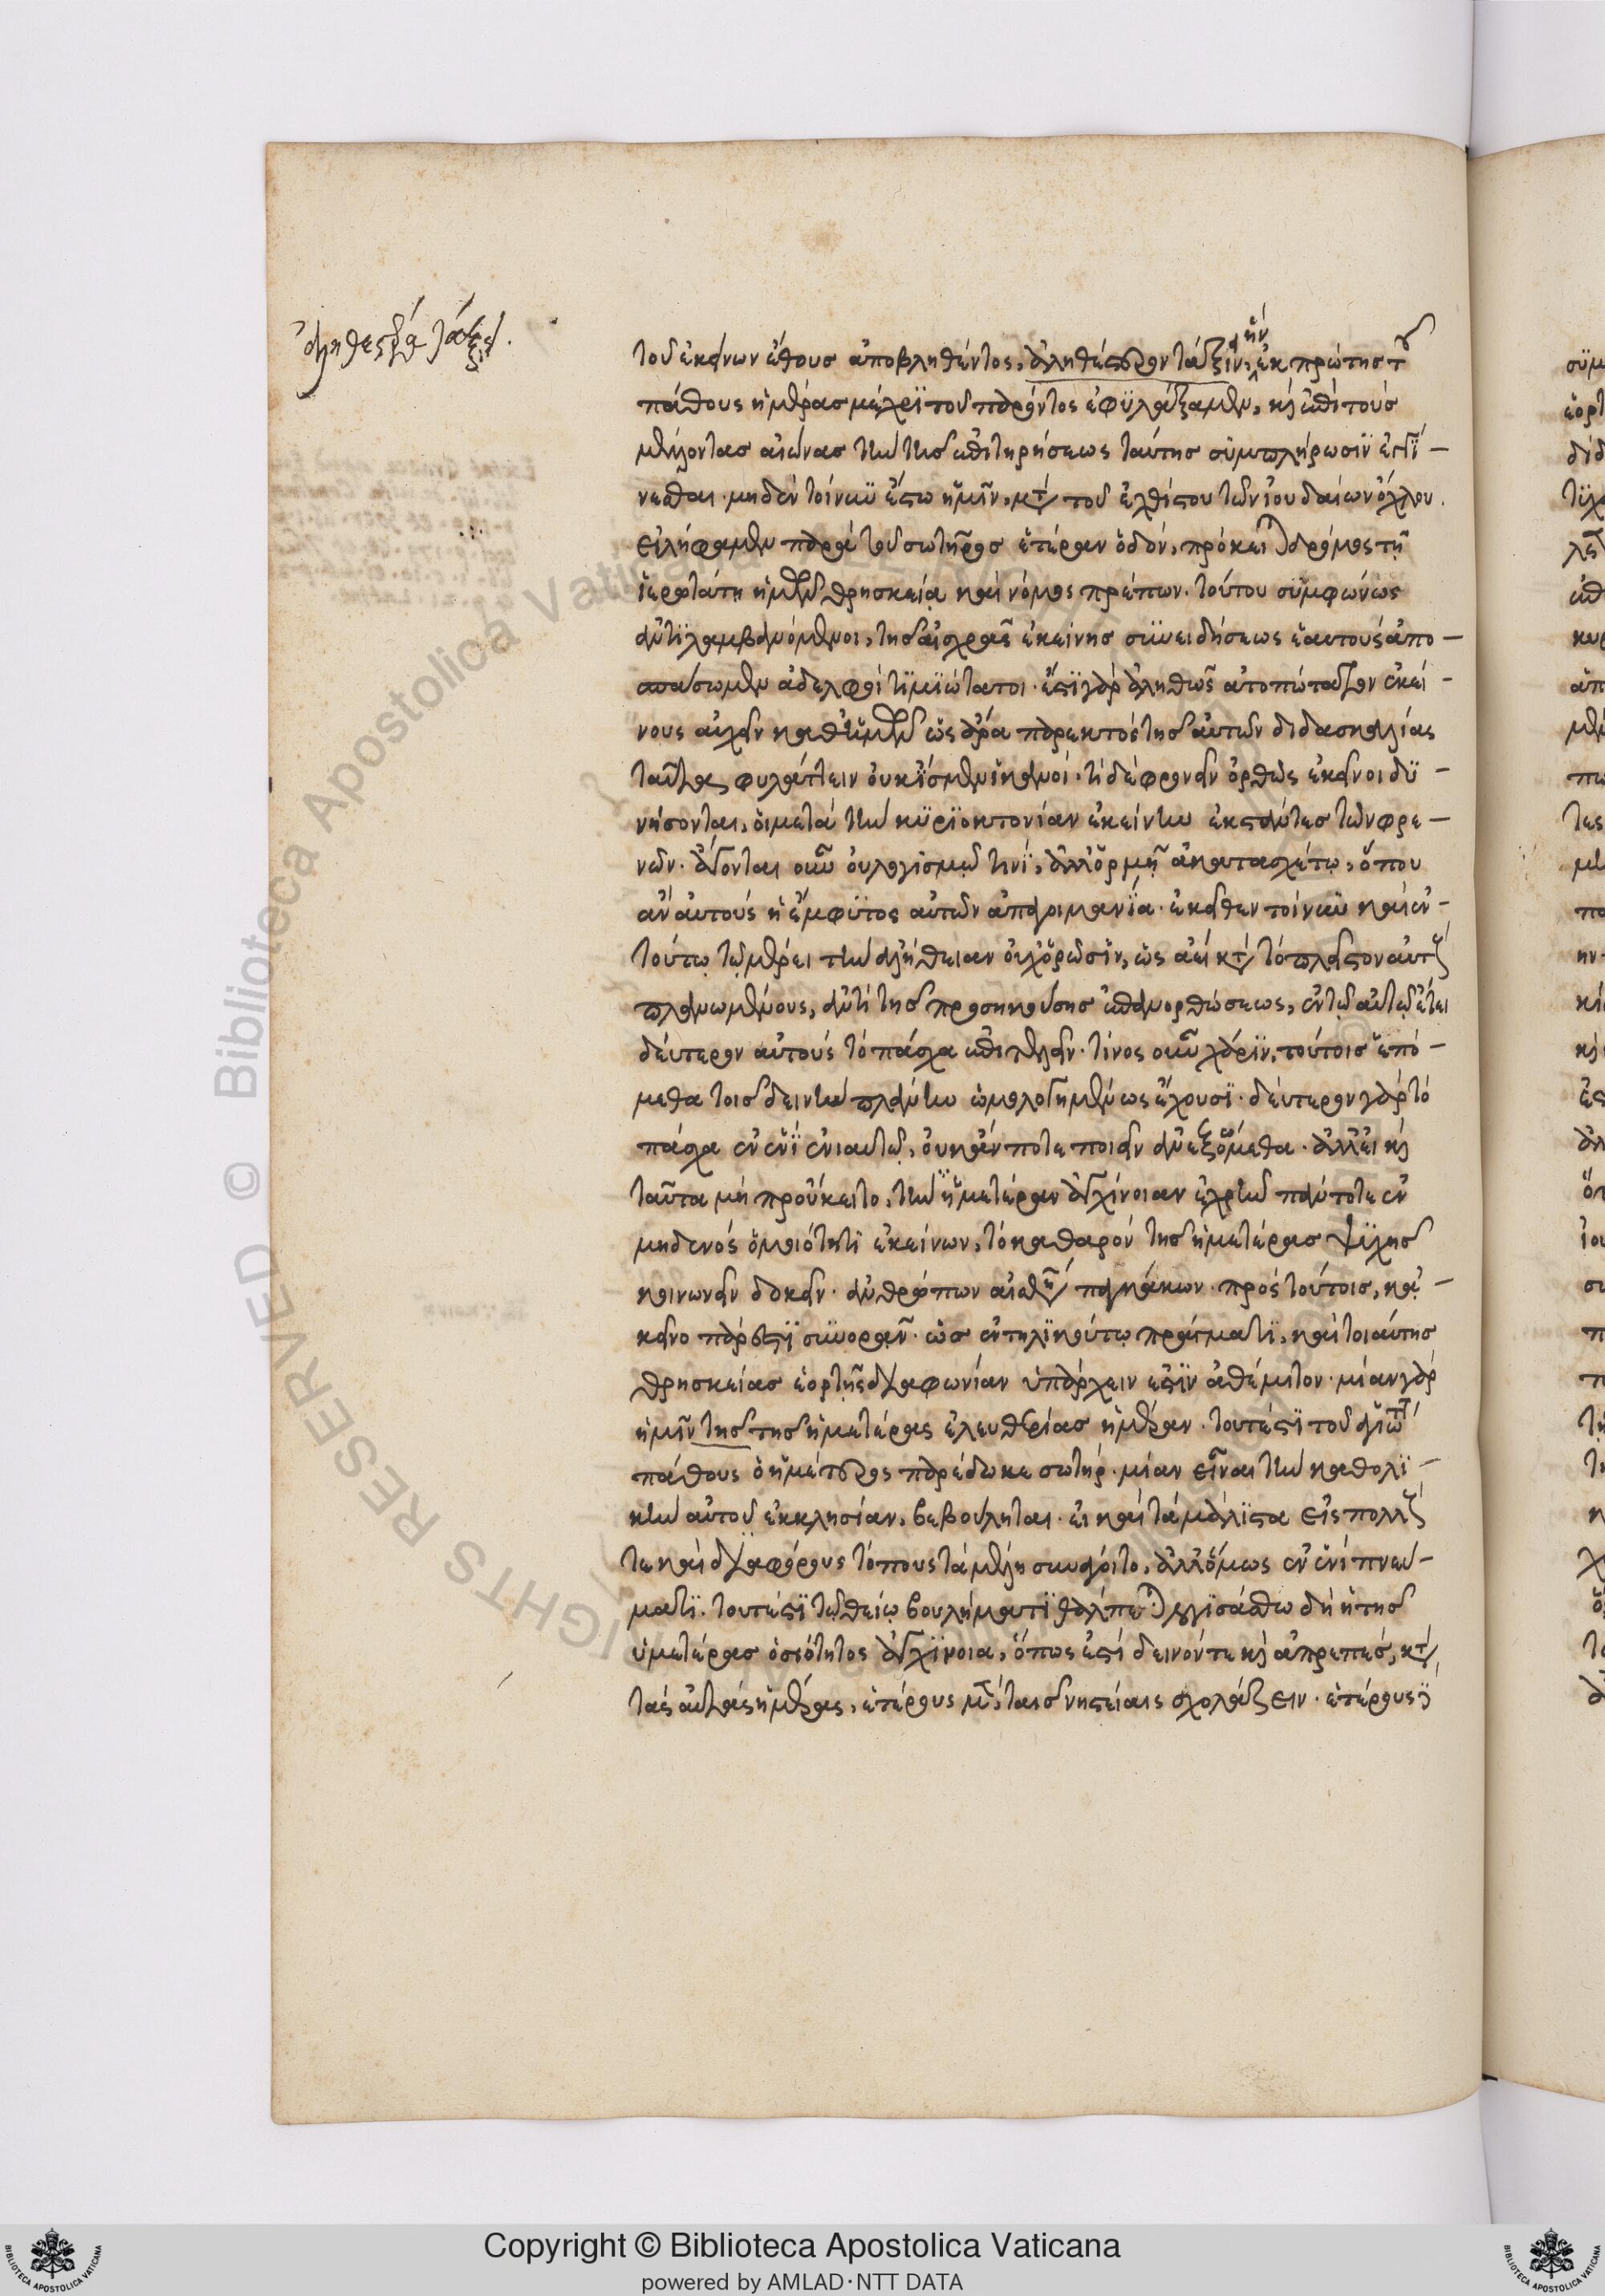 ἀληθεστέρα τάξει.
τοῦ ἐκείνων ἔθους ἀποβληθέντος, ἀληθέστερον τάξιν, ἣν ἐκ πρώτης τοῦ
πάθους ἡμέρας μέχρϊ τοῦ παρόντος ἐφϋλάξαμεν, κὶ ἐπὶ τοὺς
μέλλοντας αἰῶνας τὴν τῆς ἐπιτηρήσεως ταύτης σϋμπλήρωσϊν ἐκτΐ-
νεσθαι. μηδὲν τοίνϋν ἔστω ἡμῖν, μετὰ τοῦ ἐχθίστου τῶν ἰουδαίων ὄχλου.
εἰλήφαμεν παρὰ τοῦ σωτῆρος ἑτέραν ὁδόν, πρόκειται δρόμος τῇ
ἱερωτάτῃ ἡμῶν θρησκείᾳ καὶ νόμος πρέπων. τούτου σϋμφώνως
ἀντϊλαμβανόμενοι, τῆς αἰσχρᾶς ἐκείνης σϋνειδήσεως ἑαυτοὺς ἀπο-
σπάσωμεν ἀδελφοὶ τϊμϊώτατοι. ἔστϊ γὰρ ἀληθῶς ἀτοπώτατον ἐκεί-
νους αὐχεῖν καθ' ἡμῶν ὡς ἄρα παρεκτὸς τῆς αὐτῶν διδασκαλίας
ταῦτα φυλάττειν οὐκ ἐσμὲν ἱκανοί. τί δὲ φρονεῖν ὀρθῶς ἐκεῖνοι δϋ-
νήσονται, οἱ μετὰ τὴν κϋρϊοκτονίαν ἐκείνην ἐκστάντες τῶν φρε-
νῶν. ἄγονται οὖν οὐ λογϊσμῷ τινΐ, ἀλλ' ὁρμῇ ἀκατασχέτῳ, ὅπου
ἂν αὐτοὺς ἡ ἔμφϋτος αὐτῶν ἀπάγοι μανΐα. ἐκεῖθεν τοίνϋν καὶ ἐν
τούτῳ τῷ μέρει τὴν ἀλήθειαν οὐχ ὁρῶσϊν, ὡς ἀεὶ κατὰ τὸ πλεῖστον αὐτοὺς
πλανωμένους, ἀντὶ τῆς προσηκούσης ἐπανορθώσεως, ἐν τῷ αὐτῷ ἔτει
δεύτερον αὐτοὺς τὸ πάσχα ἐπιτελεῖν. τίνος οὖν χάρϊν, τούτοις ἑπό-
μεθα τοῖς δεινὴν πλάνην ὡμολογημένως ἔχουσϊ. δεύτερον γὰρ τὸ
πάσχα ἐν ἑνῒ ἐνιαυτῷ, οὐκ ἄν ποτε ποιεῖν ἀνεξόμεθα. ἀλλ' εἰ κὶ
ταῦτα μὴ προὔκειτο, τὴν ἡμετέραν ἀγχίνοιαν ἐχρῆν πάντοτε ἐν
μηδενὸς ὁμοιότητϊ ἐκείνων, τὸ καθαρὸν τῆς ἡμετέρας ψϋχῆς
κοινωνεῖν δοκεῖν. ἀνθρώπων παγκάκων. πρὸς τούτοις, κἀ-
κεῖνο πάρεστϊ σϋνορᾷν. ὡς ἐν τηλϊκούτῳ πράγματϊ, καὶ τοιαύτης
θρησκείας ἑορτῆς διαφωνίαν ὑπάρχειν ἐστὶν ἀθέμιτον. μίαν γὰρ
ἡμῖν τῆς τῆς ἡμετέρας ἐλευθερίας ἡμέραν. τουτέστϊ τοῦ ἁγιωτάτου
πάθους ὁ ἡμέτερος παρέδωκε σωτήρ. μίαν εἶναι τὴν καθολϊ-
κὴν αὐτοῦ ἐκκλησίαν, βεβούληται. εἰ καὶ τὰ μάλϊστα εἰς πολλοὺς
τε καὶ διαφόρους τόπους τὰ μέλη σκυδοῖτο, ἀλλ' ὅμως ἐν ἑνὶ πνευ-
ματϊ. τουτέστϊ τῷ θείῳ βουλήματϊ θάλπεται λογϊσάσθω δὴ ἡ τῆς
ὑμετέρας ὁσιότητος ἀγχϊνοια, ὅπως ἐστὶ δεινόν τε κὶ ἀπρεπές, κατὰ
τὰς αὐτὰς ἡμέρας, ἑτέρους μὲν, ταῖς νηστείαις σχολάζειν. ἑτέρους